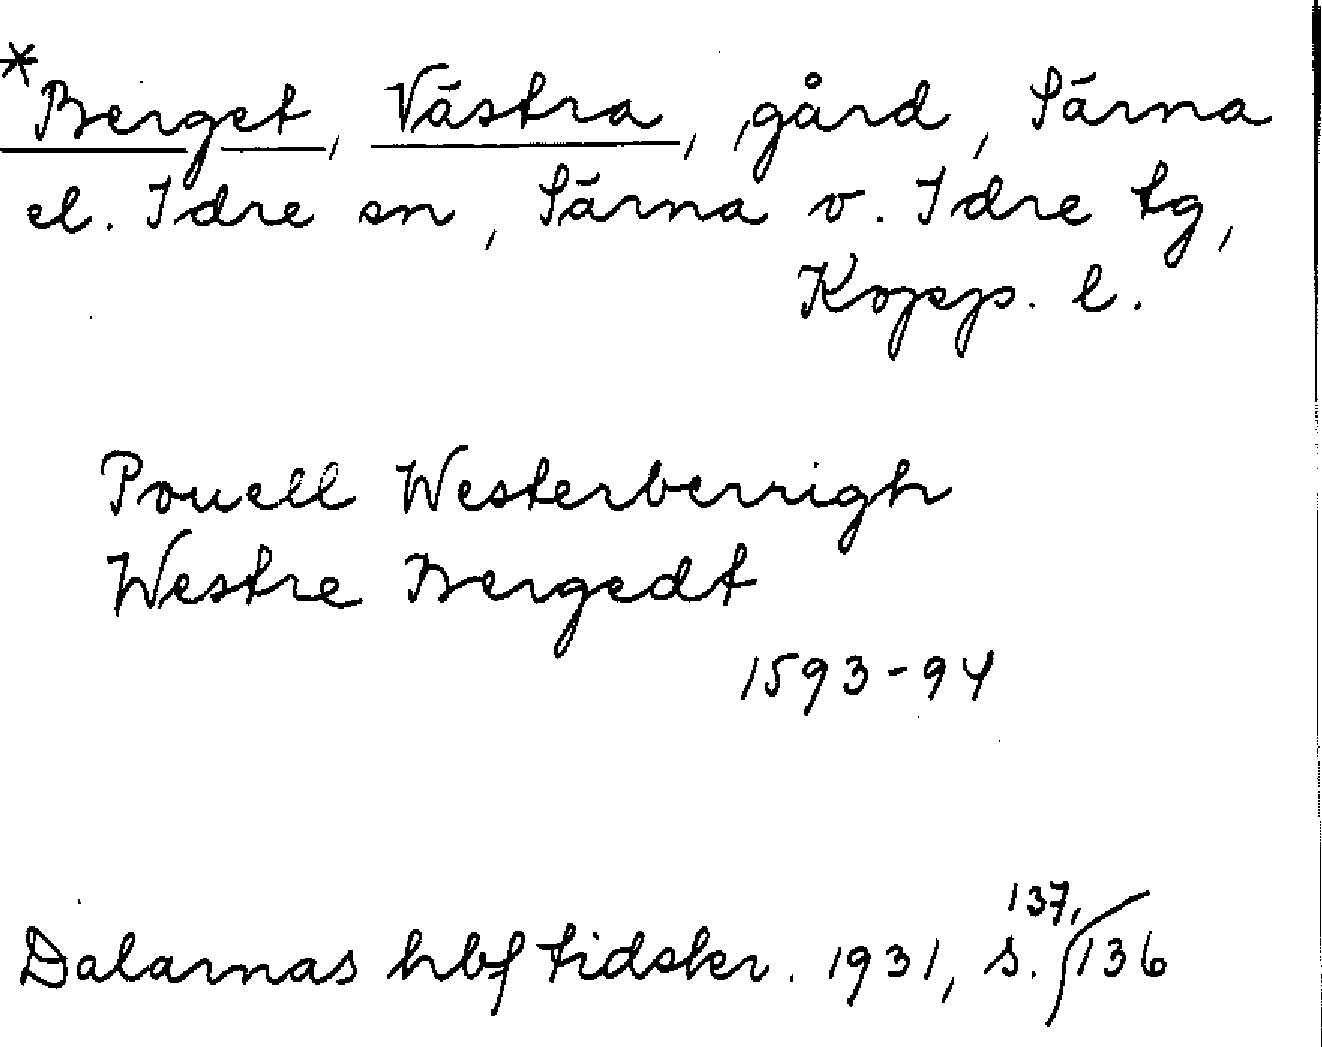 *Berget, Västra, gård, Särna
el. Idre sn, Särna o. Idre tg,
Kopp. l.
Pouell Westerberrigh
Westre Bergedt
1593-94
137,
Dalarnas hbf tidskr. 1931, s. 136